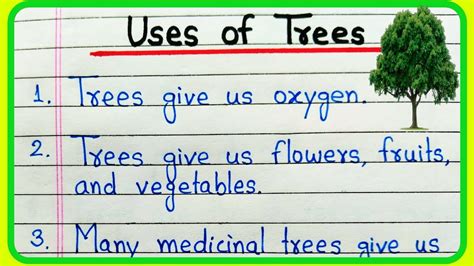 Uses of Trees
1. Trees give us oxygen.
2. Trees give us flowers, fruits,
and vegetables.
3. Many medicinal trees give us